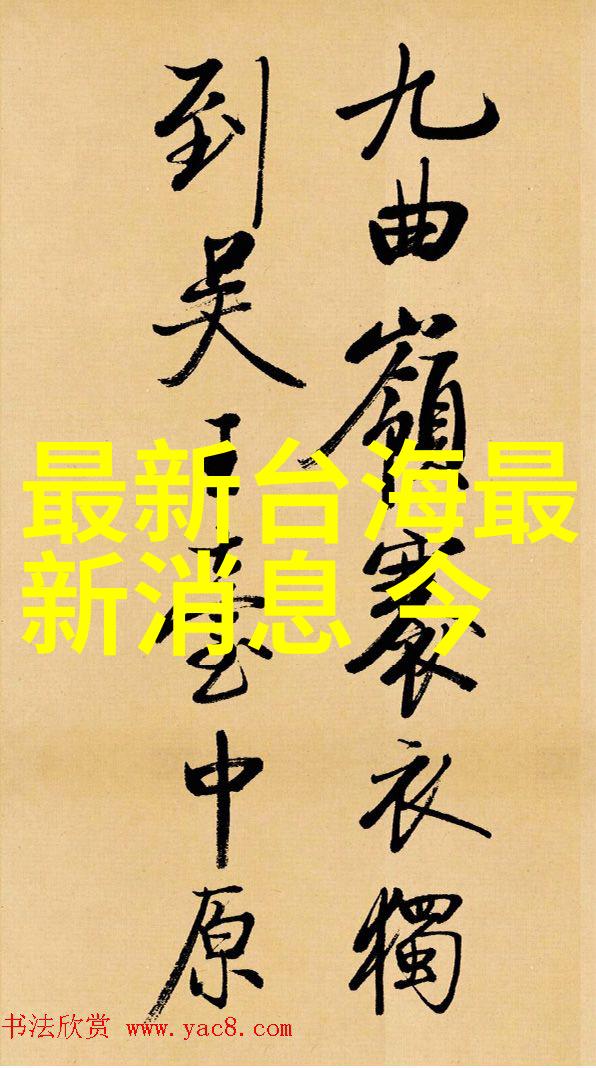 九曲嶺褰衣獨
到吴王臺中原
最新台海最
新消息 今
书法欣赏 www.yac8.com